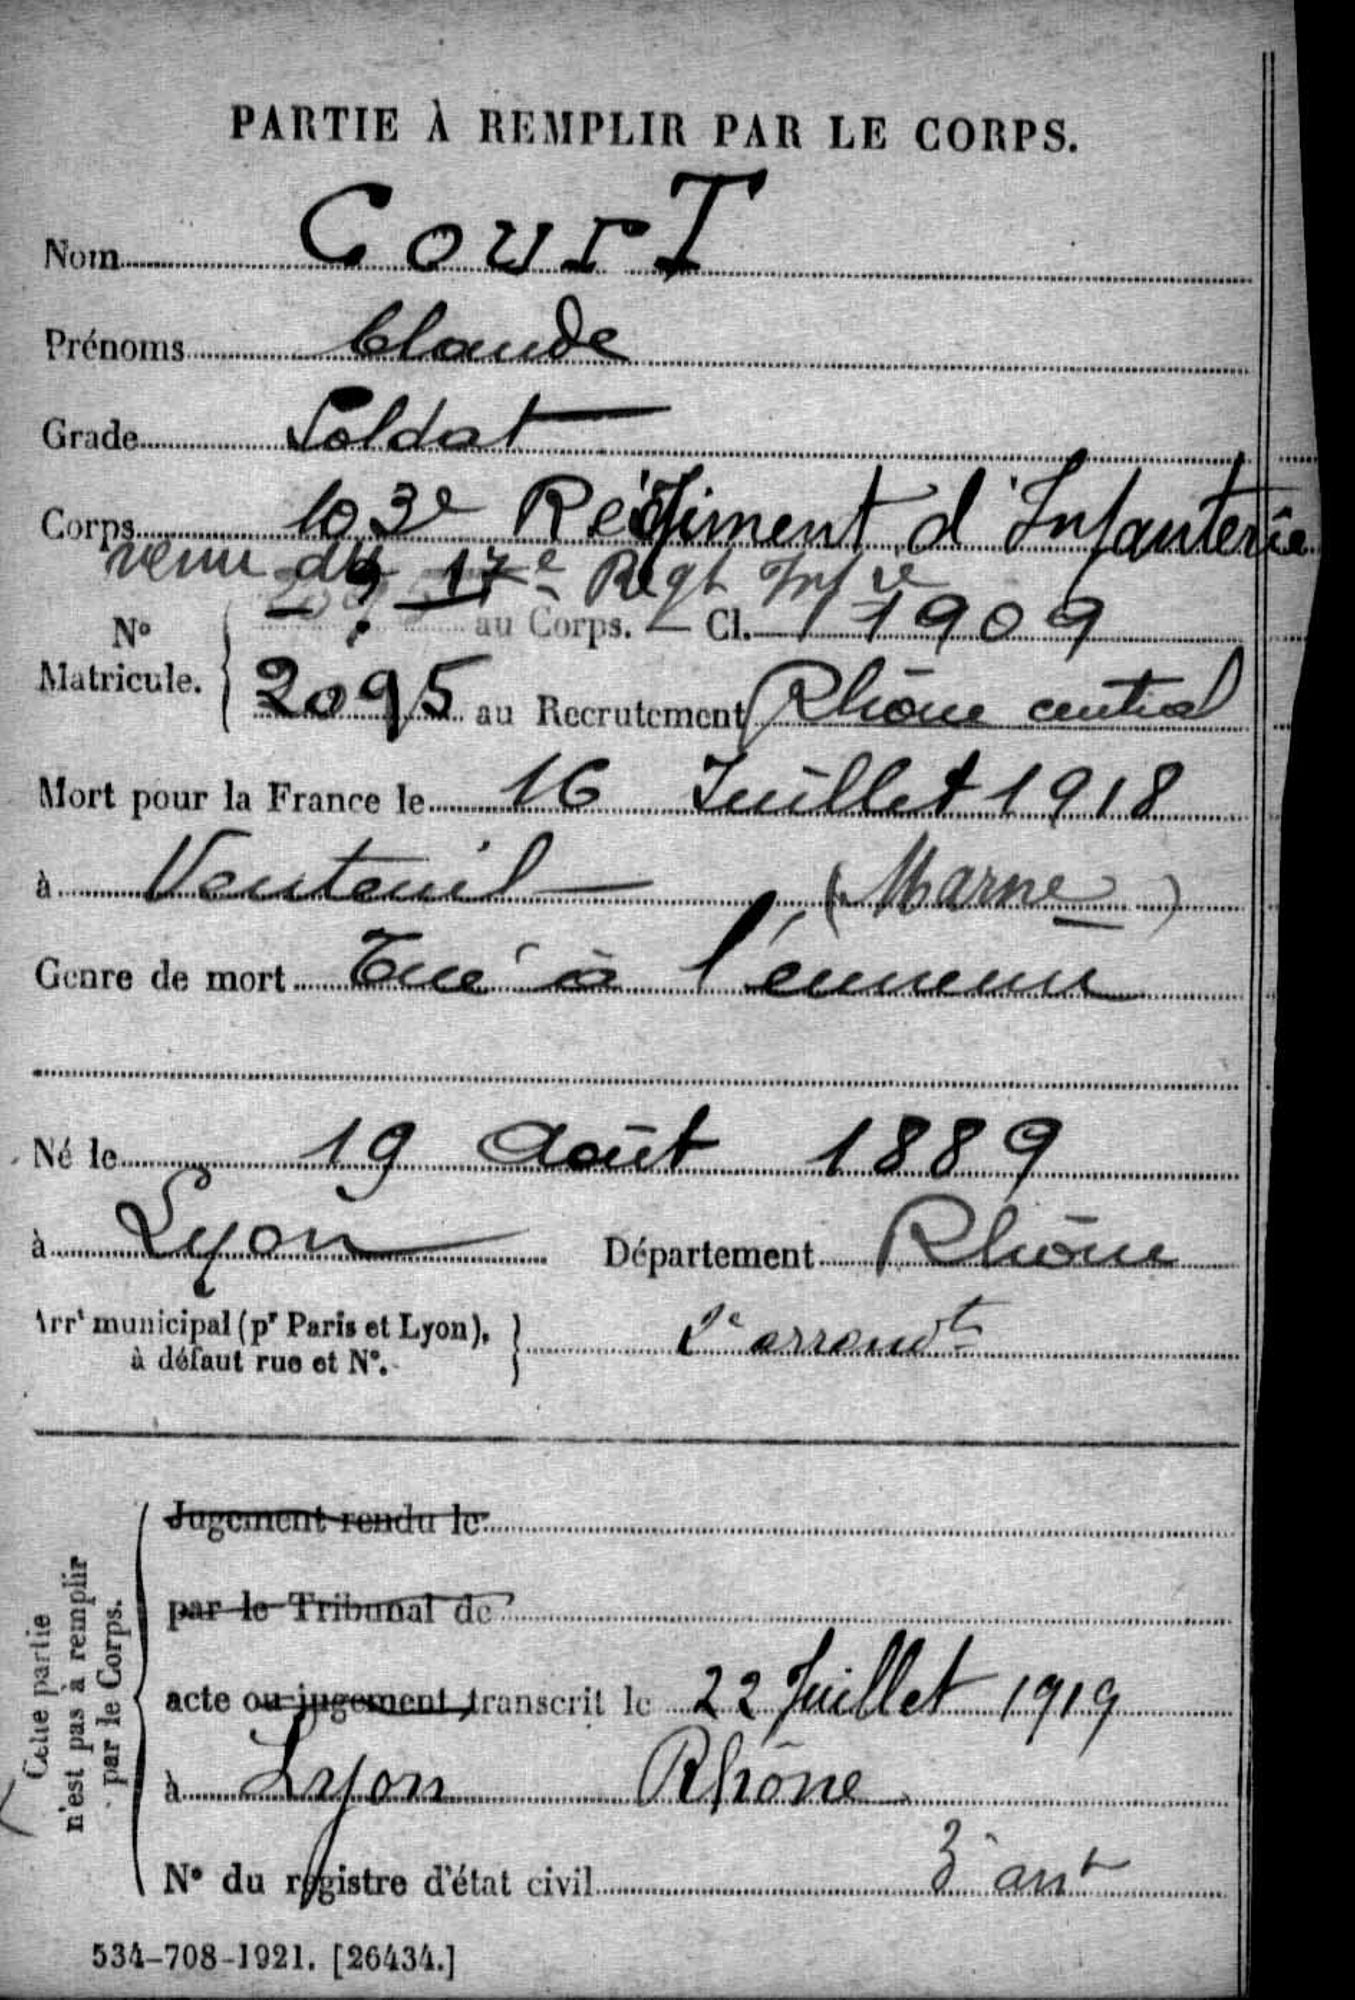 PARTIE À REMPLIR PAR LE CORPS.
Nom CourT
Prénoms Claude
Grade Soldat
Corps 103e Régiment d'Infanterie
venu du 17e Regt Infie
N° Matricule. { au Corps. — Cl. 1909
2095 au Recrutement Rhône central
Mort pour la France le 16 Juillet 1918
à Venteuil (Marne)
Genre de mort Tué à l'ennemi
Né le 19 Août 1889
à Lyon Département Rhône
Arrt municipal (pr Paris et Lyon), }
à défaut rue et N°. arrondt
Cette partie
n'est pas à remplir
par le Corps.
Jugement rendu le
par le Tribunal de
acte ou jugement transcrit le 22 Juillet 1919
à Lyon Rhône
N° du registre d'état civil 3e arrt
534-708-1921. [26434.]